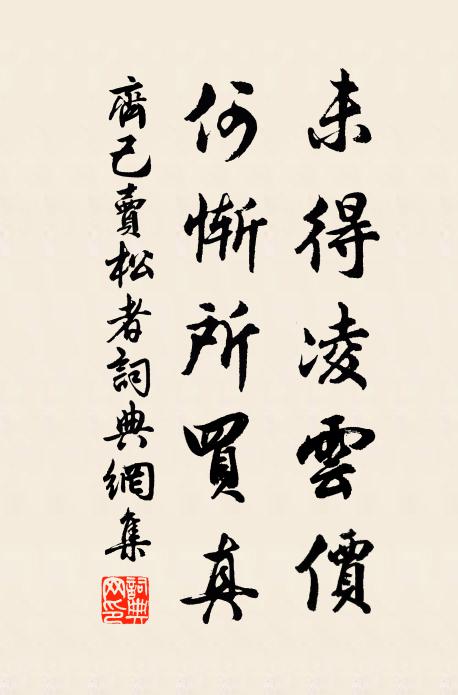 未得凌雲價
何慚所買真
齊己賣松者詞典網集
詞典網印